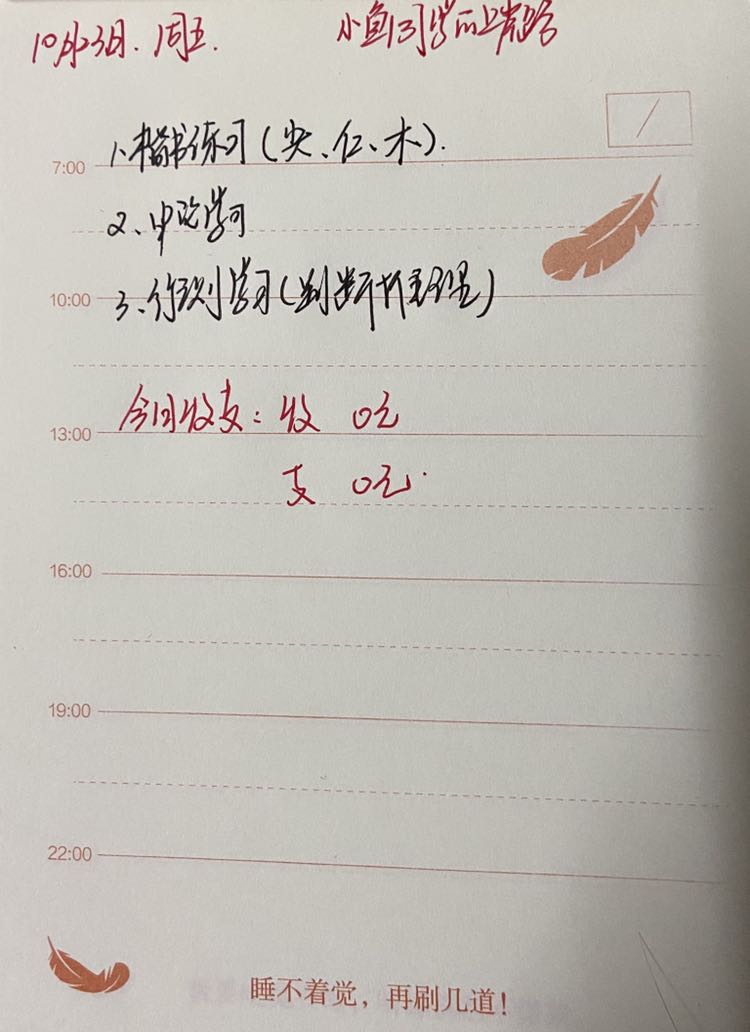 10月23日.周五. 小鱼同学的上岸路
1、楷书练习(尖、仁、木).
7:00
2、申论学习
10:00
3、行测学习(判断推理)
今日收支:收 0元
13:00
支 0元.
16:00
19:00
22:00
睡不着觉,再刷几道!